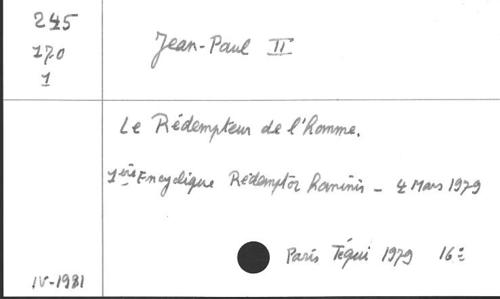 245
170
1
Jean-Paul II
Le Rédempteur de l'homme.
1ère Encyclique Redemptor hominis - 4 Mars 1979
Paris Téqui 1979 16=
IV-1981